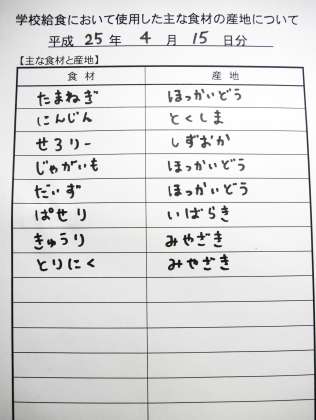 学校給食において使用した主な食材の産地について
平成 25 年 4 月 15 日分
【主な食材と産地】
食材 産地
たまねぎ ほっかいどう
にんじん とくしま
せろりー しずおか
じゃがいも ほっかいどう
だいず ほっかいどう
ぱせり いばらき
きゅうり みやざき
とりにく みやざき